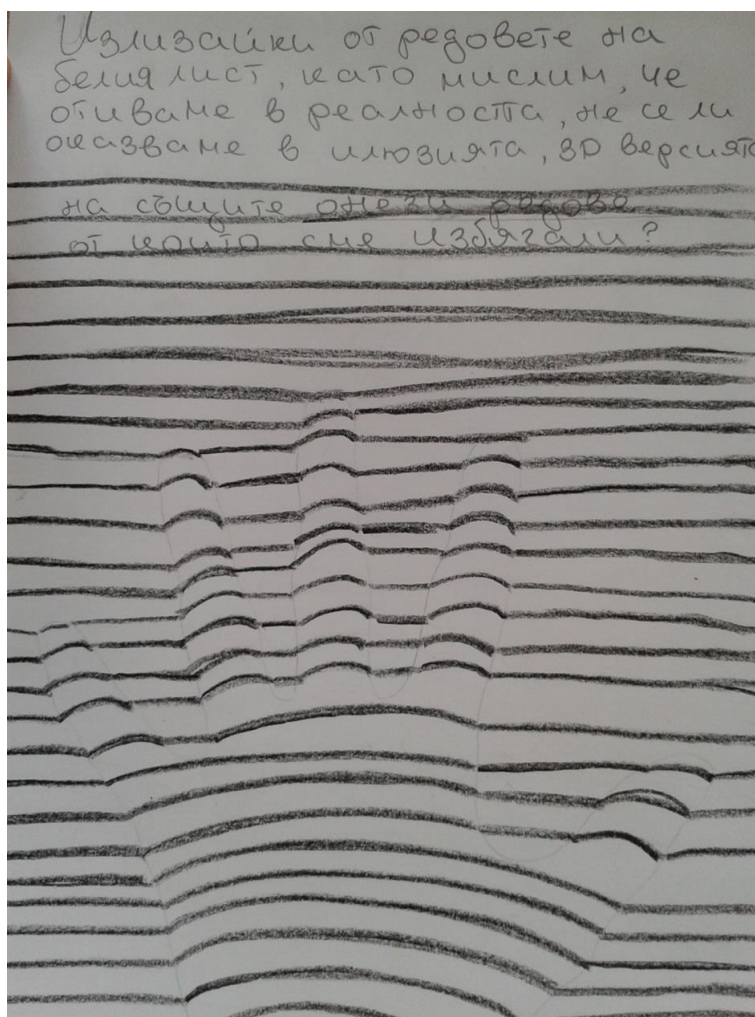 Излизайки от редовете на
белия лист, като мислим, че
отиваме в реалността, не се ли
оказваме в илюзията, 3D версията
на същите онези редове
от които сме избягали?